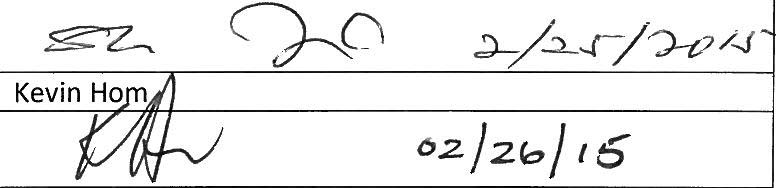 2/25/2015
Kevin Hom
02/26/15